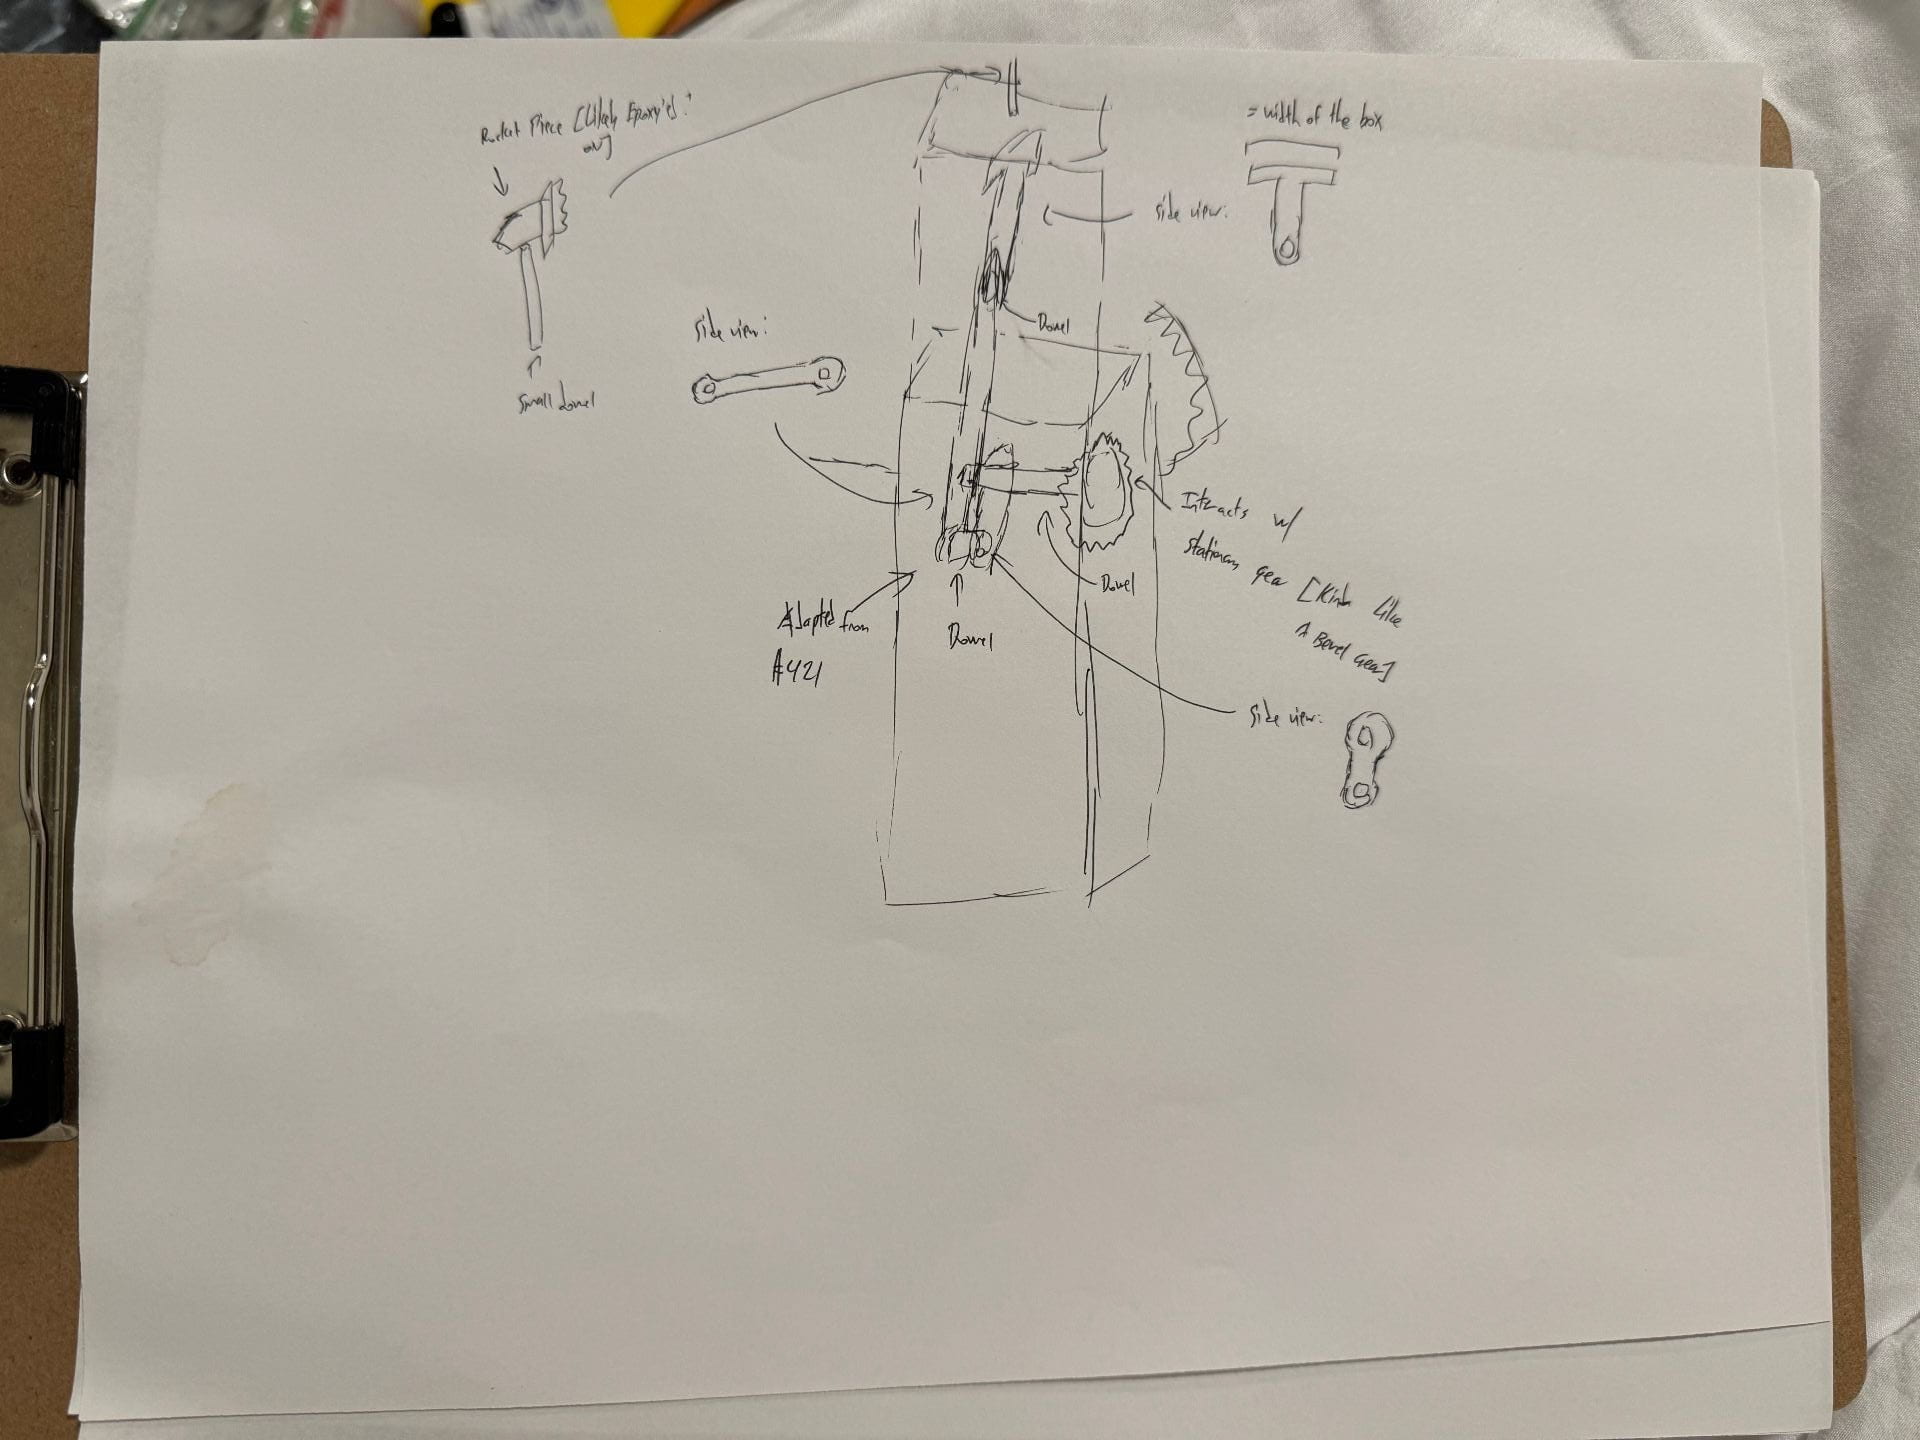 Rocket Piece [Likely Epoxy'd
on]
= width of the box
side view:
Dowel
Side view:
Small dowel
Interacts w/
stationary gear [Kinda like
A Bevel Gear]
Dowel
Adapted from
A421
Dowel
Side view: